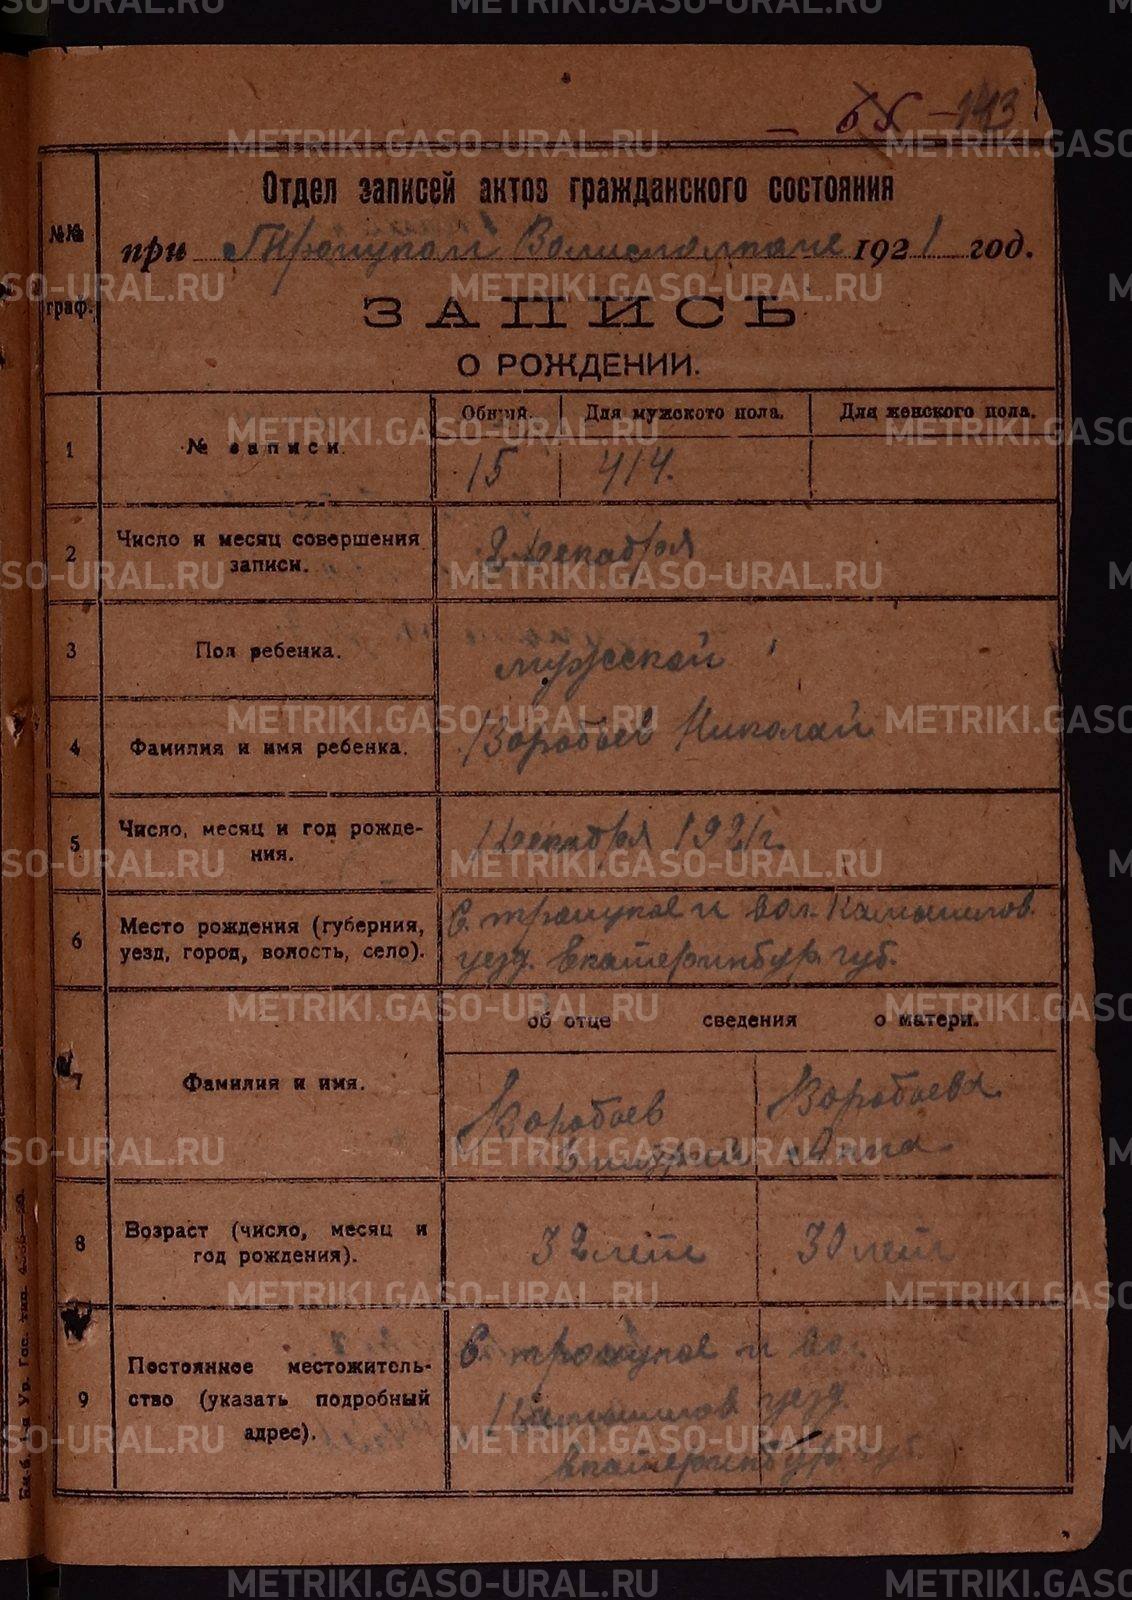 143
Отдел записей актов гражданского состояния
№№ граф.
при Троицком Волисполкоме 1921 год.
ЗАПИСЬ
О РОЖДЕНИИ.
1 № записи. Общий. Для мужского пола. Для женского пола.
15 414.
2 Число и месяц совершения записи. 2 Декабря
3 Пол ребенка. мужской
4 Фамилия и имя ребенка. Воробьев Николай
5 Число, месяц и год рожде-
ния. 1 Декабря 1921 г.
6 Место рождения (губерния, уезд, город, волость, село). С. и вол. Камышлов.
уезд. Екатеринбур. губ.
об отце сведения о матери.
7 Фамилия и имя. Воробьев Воробьева
Дмитрий Анна
8 Возраст (число, месяц и год рождения). 32 лет 30 лет
9 Постоянное местожитель-
ство (указать подробный адрес). С. и вол.
Камышлов уезд.
Екатеринбур. губ.
METRIKI.GASO-URAL.RU